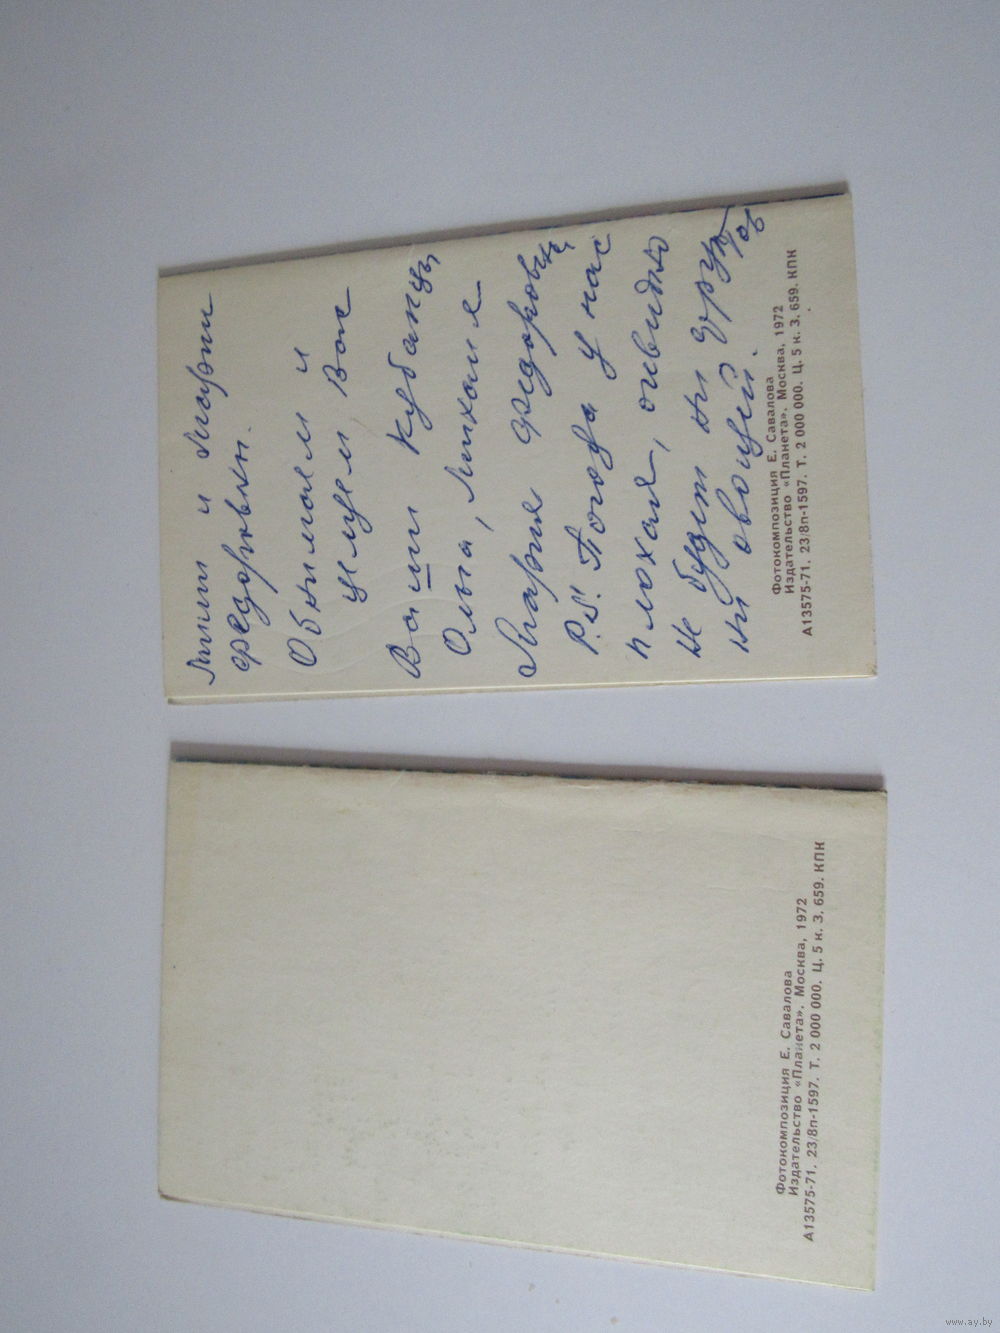 Лили и Марии
Федоровны.
Обнимаем и
целуем Вас
Ваши Кубанцы
Ольга,
Мария Федоровна
P.S. Погода у нас
плохая, очевидно
не будет ни фрук
тов
ни овощей.
Фотокомпозиция Е. Савалова
Издательство «Планета». Москва, 1972
А13575-71. 23/8п-1597. Т. 2 000 000. Ц. 5 к. З. 659. КПК
Фотокомпозиция Е. Савалова
Издательство «Планета». Москва, 1972
А13575-71. 23/8п-1597. Т. 2 000 000. Ц. 5 к. З. 659. КПК
www.ay.by